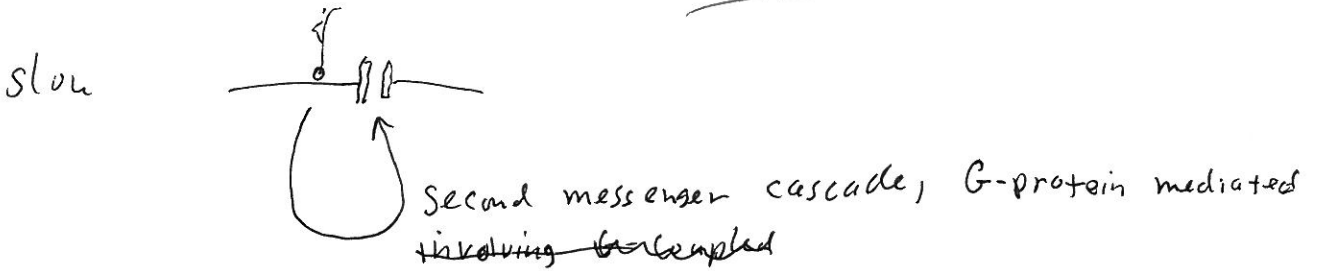 slow
second messenger cascade, G-protein mediated
involving